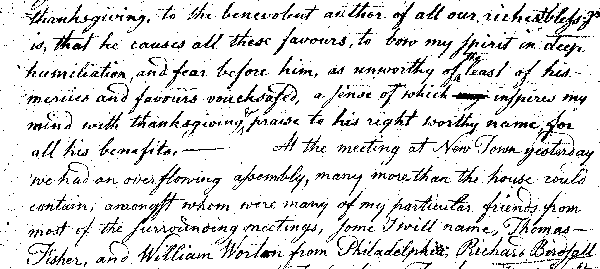 thanksgiving, to the benevolent author of all our richest bless-gs
is, that he causes all these favours, to bow my spirit in deep
humiliation, and fear before him, as unworthy of the least of his
mercies and favours vouchsafed, a sense of which inspires my
mind with thanksgiving, praise to his right worthy name, for
all his benefits. — At the meeting at New Town yesterday
we had an overflowing assembly, many more than the house could
contain; amongst whom were many of my particular friends from
most of the surrounding meetings, some I will name, Thomas-
Fisher, and William from Philadelphia, Richard Birdsall